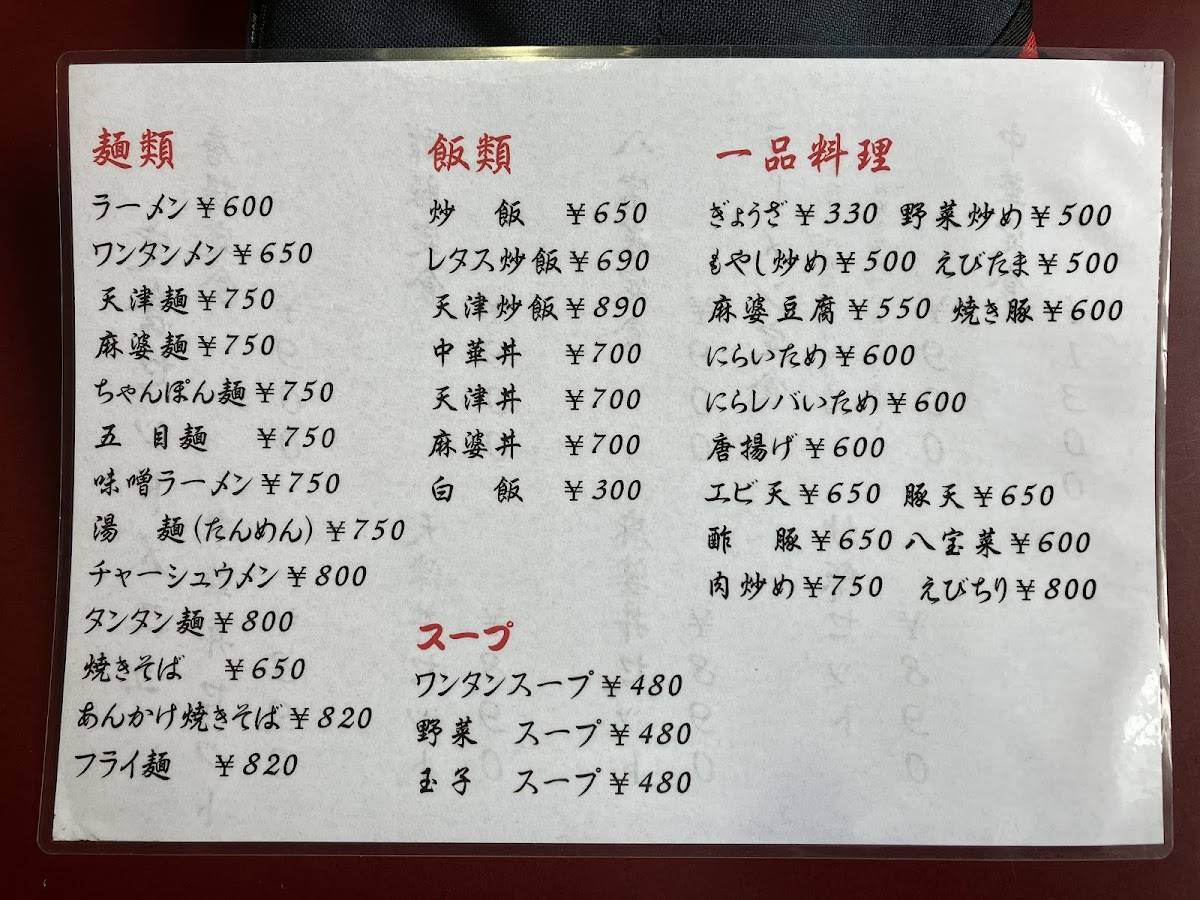 麺類
ラーメン¥600
ワンタンメン¥650
天津麺¥750
麻婆麺¥750
ちゃんぽん麺¥750
五 目麺 ¥750
味噌ラーメン¥750
湯 麺(たんめん)¥750
チャーシュウメン¥800
タンタン麺¥800
焼きそば ¥650
あんかけ焼きそば¥820
フライ麺 ¥820
飯類
炒 飯 ¥650
レタス炒飯¥690
天津炒飯¥890
中華丼 ¥700
天津丼 ¥700
麻婆丼 ¥700
白 飯 ¥300
スープ
ワンタンスープ¥480
野菜 スープ¥480
玉子 スープ¥480
一品料理
ぎょうざ¥330 野菜炒め¥500
もやし炒め¥500 えびたま¥500
麻婆豆腐¥550 焼き豚¥600
にらいため¥600
にらレバいため¥600
唐揚げ¥600
エビ天¥650 豚天¥650
酢 豚¥650 八宝菜¥600
肉炒め¥750 えびちり¥800